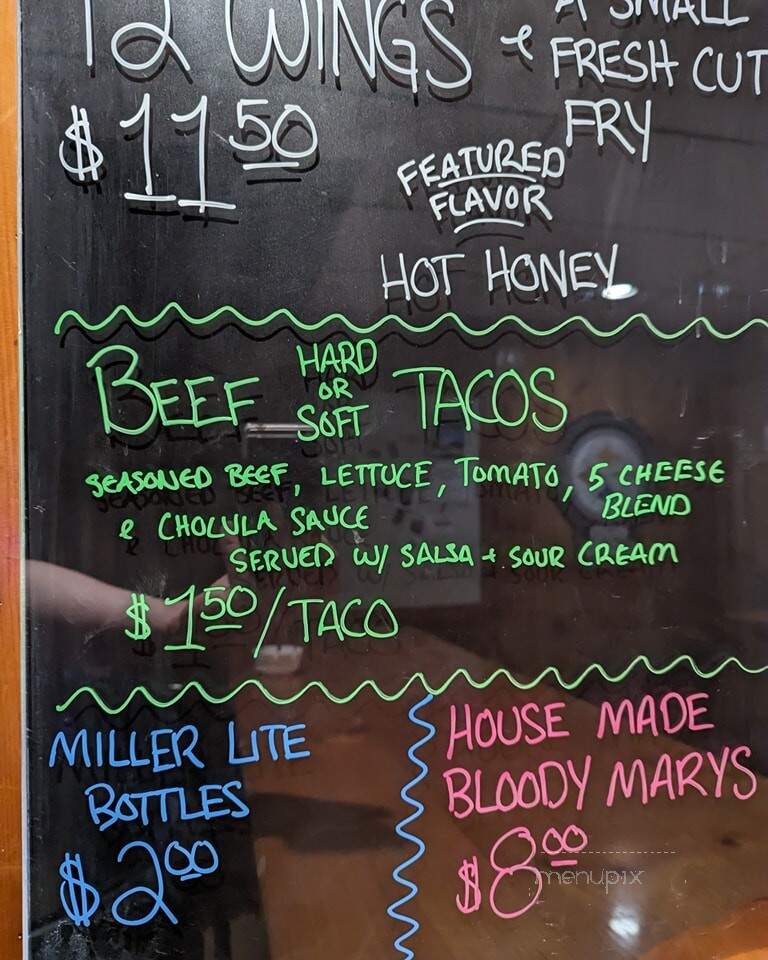 12 WINGS & A SMALL
FRESH CUT
FRY
$11.50
FEATURED
FLAVOR
HOT HONEY
BEEF HARD OR SOFT TACOS
SEASONED BEEF, LETTUCE, TOMATO, 5 CHEESE
BLEND
& CHOLULA SAUCE
SERVED W/ SALSA + SOUR CREAM
$1.50/TACO
MILLER LITE
BOTTLES
$2.00
HOUSE MADE
BLOODY MARYS
$8.00
menupix